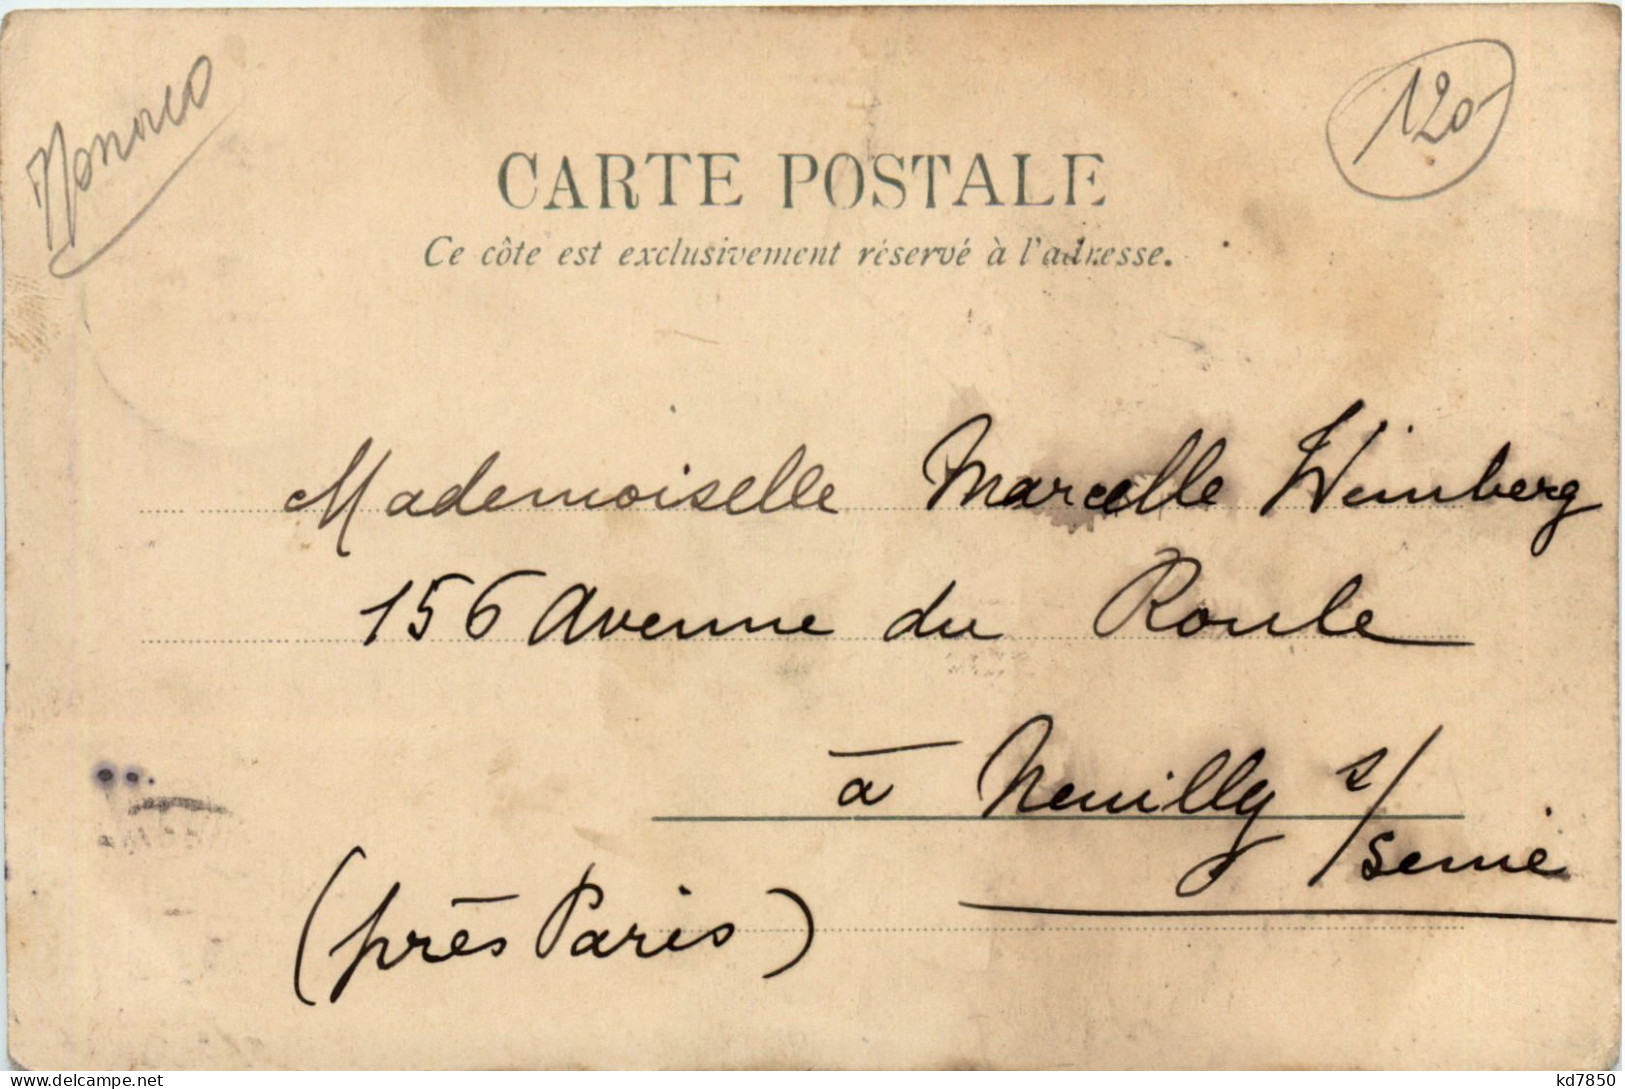 Monaco
120
CARTE POSTALE
Ce côte est exclusivement réservé à l'adresse.
Mademoiselle Marcelle Weinberg
156 Avenue du Roule
à Neuilly s/
Seine
(près Paris)
kd7850